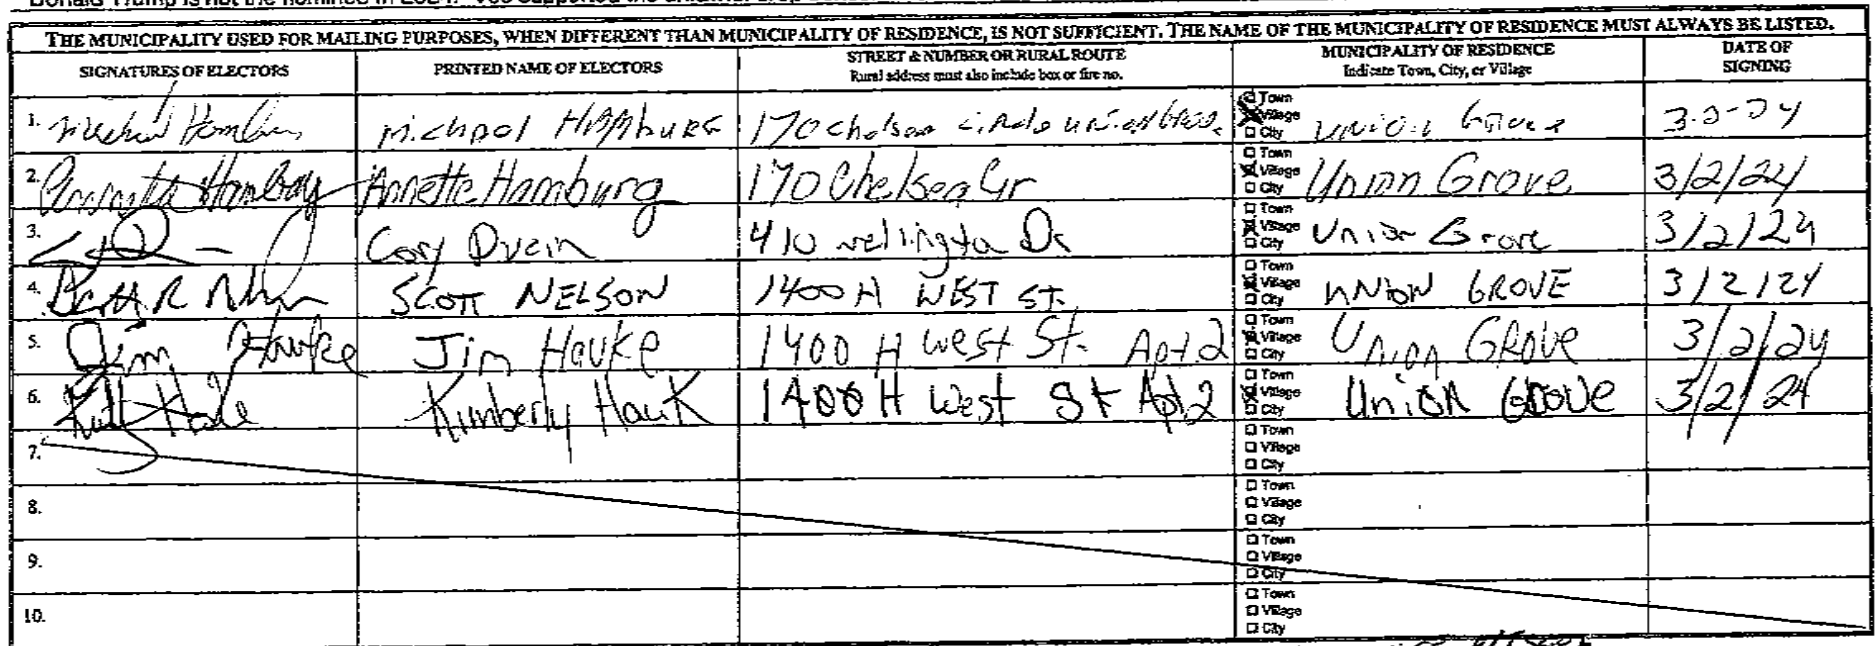 THE MUNICIPALITY USED FOR MAILING PURPOSES, WHEN DIFFERENT THAN MUNICIPALITY OF RESIDENCE, IS NOT SUFFICIENT. THE NAME OF THE MUNICIPALITY OF RESIDENCE MUST ALWAYS BE LISTED.
SIGNATURES OF ELECTORS PRINTED NAME OF ELECTORS STREET & NUMBER OR RURAL ROUTE MUNICIPALITY OF RESIDENCE DATE OF SIGNING
Rural address must also include box or fire no. Indicate Town, City, or Village
1. Michael HAMBURG 170 Chelsea Union Town Village City Union Grove
2. Annette Hamburg 170 Chelsea Cir Town Village City Union Grove 3/2/24
3. Cory 410 wellington Dr Town Village City Union Grove 3/2/24
4. SCOTT NELSON 1400 H WEST ST. Town Village City UNION GROVE 3/2/24
5. Jim Hauke Jim Hauke 1400 H West St. Apt 2 Town Village City Union GROVE 3/2/24
6. Kimberly Hauk 1400 H West St Apt 2 Town Village City Union GROVE 3/2/24
7. Town Village City
8. Town Village City
9. Town Village City
10. Town Village City